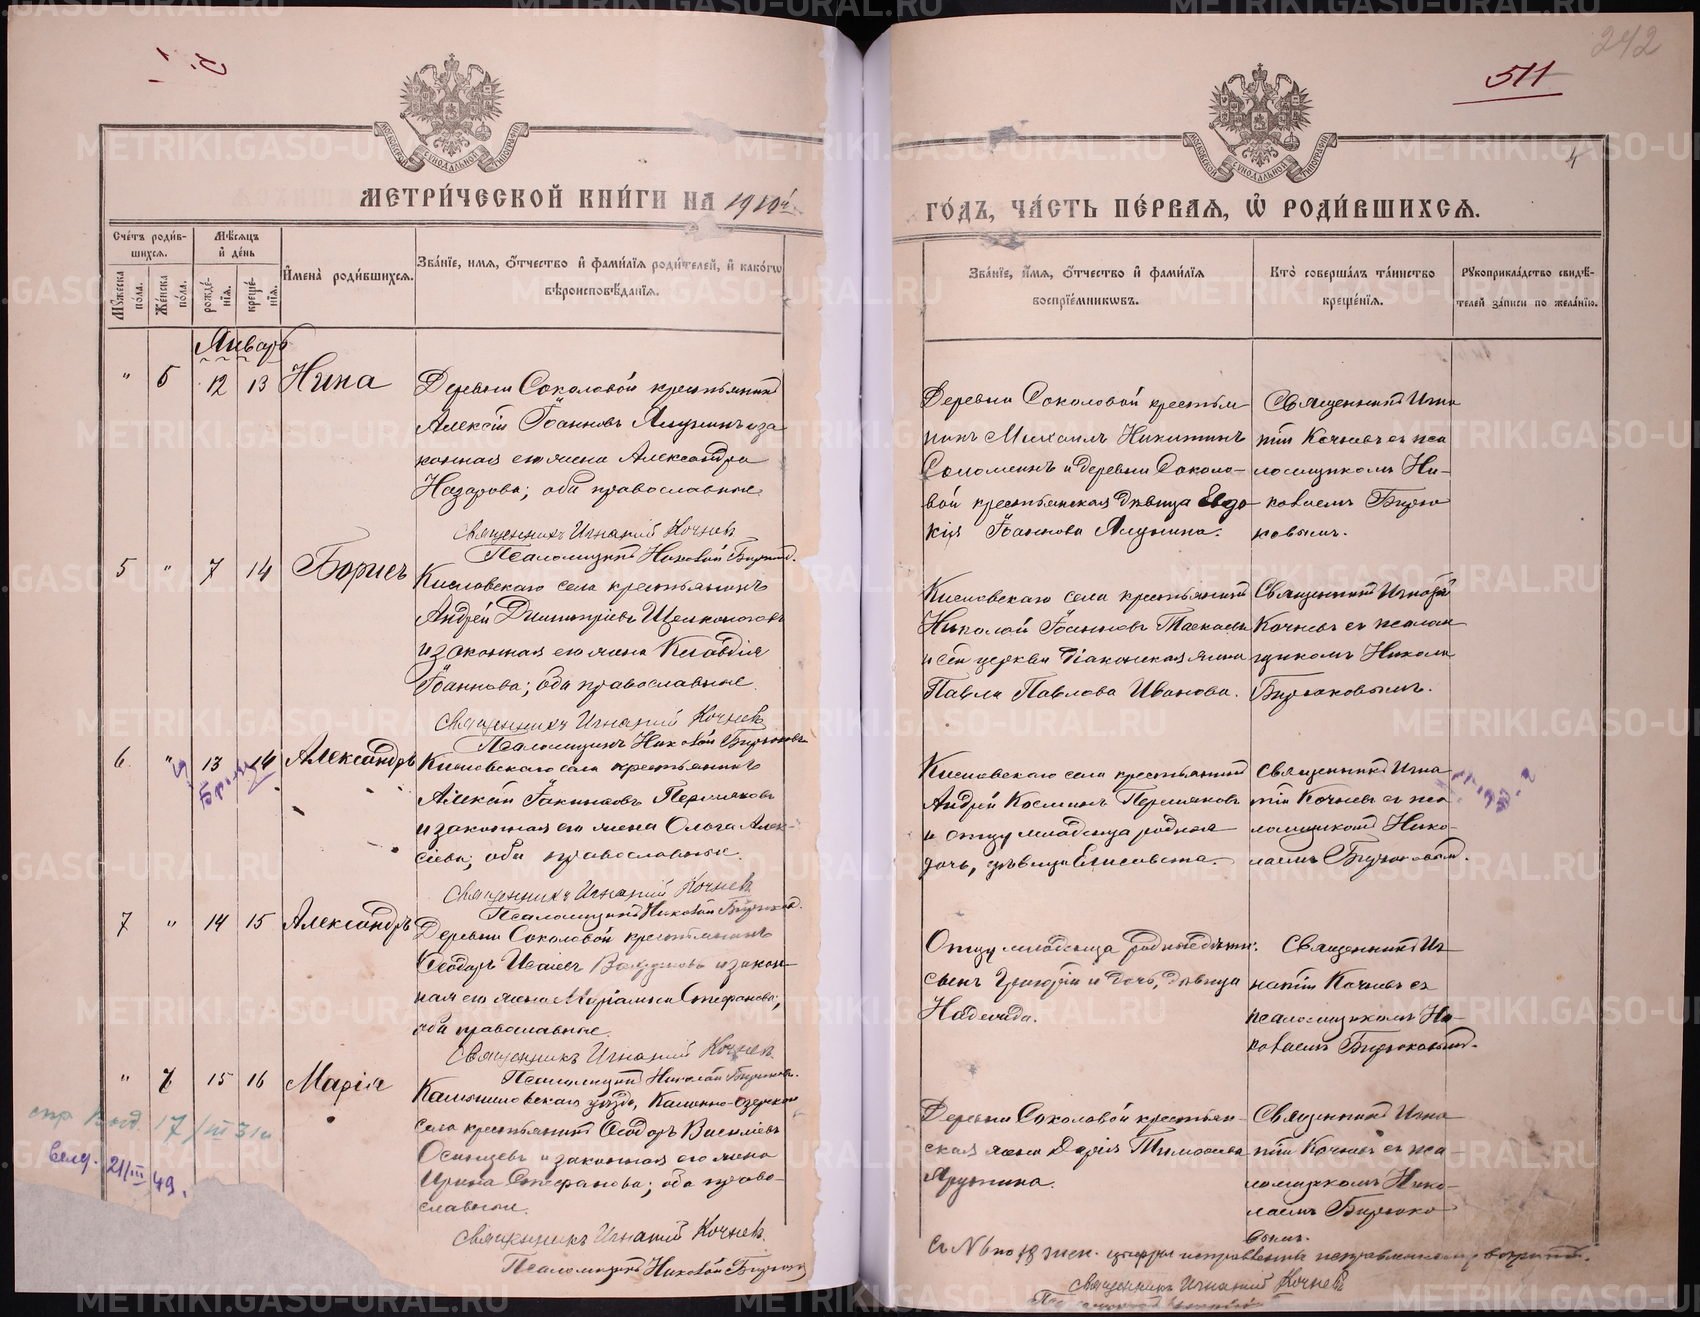 242
511
4
МОСКОВСКОЙ СѴНОДАЛЬНОЙ ТИПОГРАФІИ
МОСКОВСКОЙ СѴНОДАЛЬНОЙ ТИПОГРАФІИ
МЕТРИ́ЧЕСКОЙ КНИ́ГИ НА 1910й
ГО́ДЪ, ЧА́СТЬ ПЕ́РВАЯ, Ѡ҆ РОДИ́ВШИХСЯ.
Сче́тъ роди́вшихся.
Му́жеска по́ла.
Же́нска по́ла.
Мѣ́сяцъ и҆ де́нь
рожде́нія.
креще́нія.
И҆мена̀ роди́вшихся.
Зва́ніе, имя, ѻ҆́тчество и҆ фами́лія роди́телей, и҆ како́гѡ
вѣроисповѣ́данія.
Зва́ніе, и҆́мя, ѻ҆́тчество и҆ фами́лія
воспріе́мниковъ.
Кто̀ соверша́лъ та́инство
креще́нія.
Рукоприкла́дство свидѣ́-
телей за́писи по жела́нію.
Январь
" 6 12 13 Нина
Деревни Соколовой крестьянинъ
Алексѣй Іоанновъ Ялунинъ и за
конная его жена Александра
Назарова; оба православные.
Священникъ Игнатій Кочневъ
Псаломщикъ Николай Бирюков.
Деревни Соколовой крестья
нинъ Михаилъ Никитинъ
Соломеинъ и деревни Соколо-
вой крестьянская дѣвица Евдо
кія Іоаннова Ялунина.
Священникъ Игна
тій Кочневъ съ пса
ломщикомъ Ни-
колаемъ Бирю
ковымъ.
5 " 7 14 Борисъ
Кисловскаго села крестьянинъ
Андрей Димитріевъ Щелконоговъ
и законная его жена Клавдія
Іоаннова; оба православные.
Священникъ Игнатій Кочневъ
Псаломщикъ Николай Бирюковъ
Кисловскаго села крестьянинъ
Николай Іоанновъ Таскаевъ
и сей церкви діаконская жена
Павла Павлова Иванова.
Священникъ Игнатій
Кочневъ съ псалом
щикомъ Никола
Бирюковымъ.
6 " 13 14 Александръ
Брак
Кисловскаго села крестьянинъ
Алексѣй Іакинфовъ Пермяковъ
и законная его жена Ольга Алек-
сіева; оба православные.
Священникъ Игнатій Кочневъ
Псаломщикъ Николай Бирюков.
Кисловскаго села крестьянинъ
Андрей Косминъ Пермяковъ
и отцу младенца родная
дочь, дѣвица Елисавета.
Священникъ Игна
тій Кочневъ съ пса
ломщикомъ Нико-
лаемъ Бирюковым.
7 " 14 15 Александръ
Деревни Соколовой крестьянинъ
Ѳеодоръ Исаіевъ и закон-
ная его жена Маріамна Стефанова;
оба православные.
Священникъ Игнатій Кочневъ
Псаломщикъ Николай Бирюковъ.
Отцу младенца родные дѣти:
сынъ Григорій и дочь, дѣвица
Надежда.
Священникъ Иг
натій Кочневъ съ
псаломщикомъ Ни-
колаемъ Бирюковым.
" 7 15 16 Марія
17/III 31г.
21/III 49.
Камышловскаго уѣзда, Каменно-озерскаго
села крестьянинъ Ѳеодоръ Василіевъ
Осинцевъ и законная его жена
Ирина Стефанова; оба право-
славные.
Священникъ Игнатій Кочневъ.
Псаломщикъ Николай Бирюков
Деревни Соколовой крестьян-
ская жена Дарія Тимофеева
Ярушина.
Священникъ Игна
тій Кочневъ съ пса-
ломщикомъ Нико-
лаемъ Бирюко
вымъ.
Съ № 6 по 18 жен. цифры исправлены исправленному вѣрить.
Священникъ Игнатій Кочневъ
METRIKI.GASO-URAL.RU